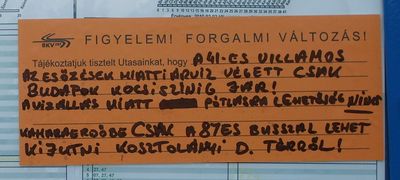 BKV
FIGYELEM! FORGALMI VÁLTOZÁS!
Tájékoztatjuk tisztelt Utasainkat, hogy A 41-ES VILLAMOS
AZ ESŐZÉSEK MIATTI ÁRVÍZ VÉGETT CSAK
BUDAFOK KOCSISZÍNIG JÁR!
A VÍZÁLLÁS MIATT PÓTLÁSRA LEHETŐSÉG NINCS
KAMARAERDŐBE CSAK A 87ES BUSSZAL LEHET
KIJUTNI KOSZTOLÁNYI D. TÉRRŐL!